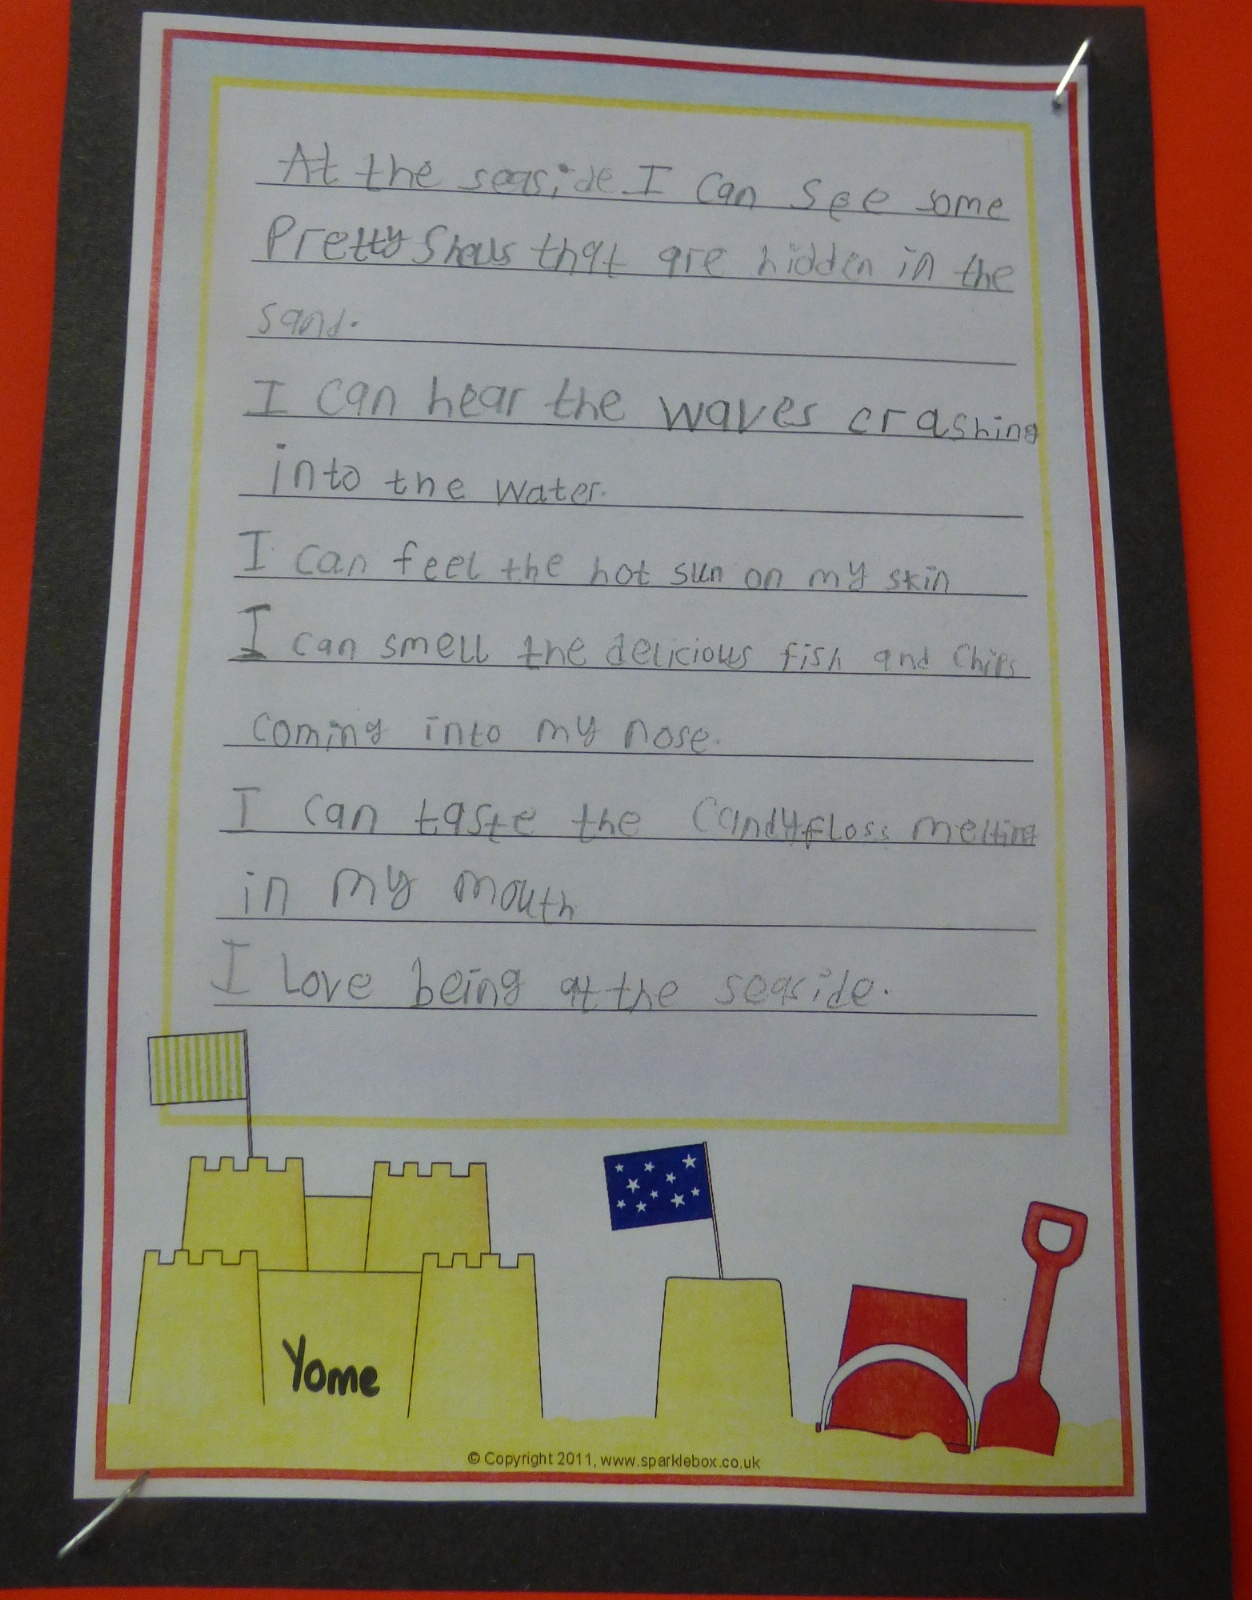 At the seaside I can see some
Pretty Shells that are hidden in the
sand.
I can hear the waves crashing
into the water.
I can feel the hot sun on my skin
I can smell the delicious fish and chips
coming into my nose.
I can taste the candyfloss melting
in my mouth
I love being at the seaside.
Yome
© Copyright 2011, www.sparklebox.co.uk